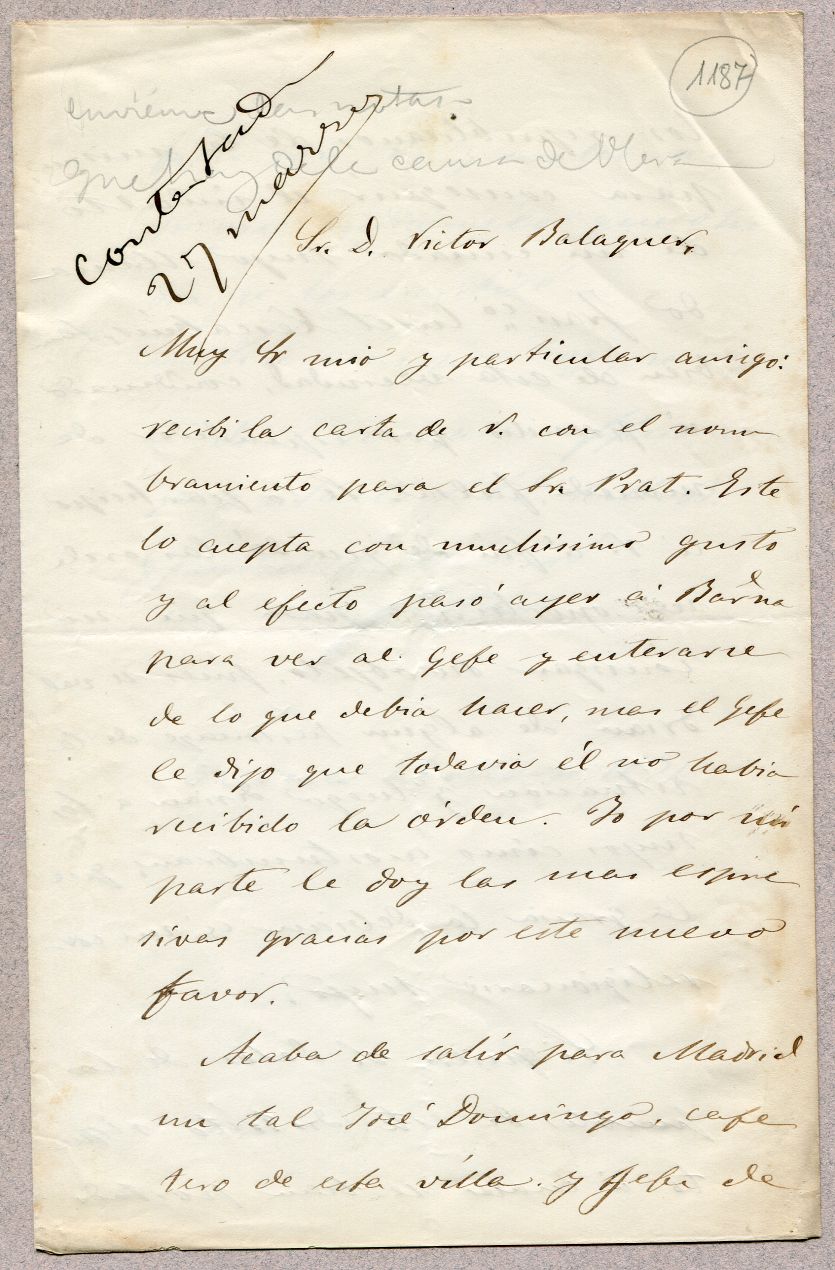 1187
enviéme las notas
que hay de la causa de
contestada
27 marzo
Sr. D. Victor Balaguer.
Muy Sr mio y particular amigo:
recibi la carta de V. con el nom
bramiento para el Sr. Prat. Este
lo acepta con muchisimo gusto
y al efecto pasó ayer á Barna
para ver al Gefe y enterarse
de lo que debia hacer, mas el Gefe
le dijo que todavia él no habia
recibido la órden. Yo por mi
parte le doy las mas espre
sivas gracias por este nuevo
favor.
Acaba de salir para Madrid
un tal José Domingo, cafe
tero de esta villa y Gefe de